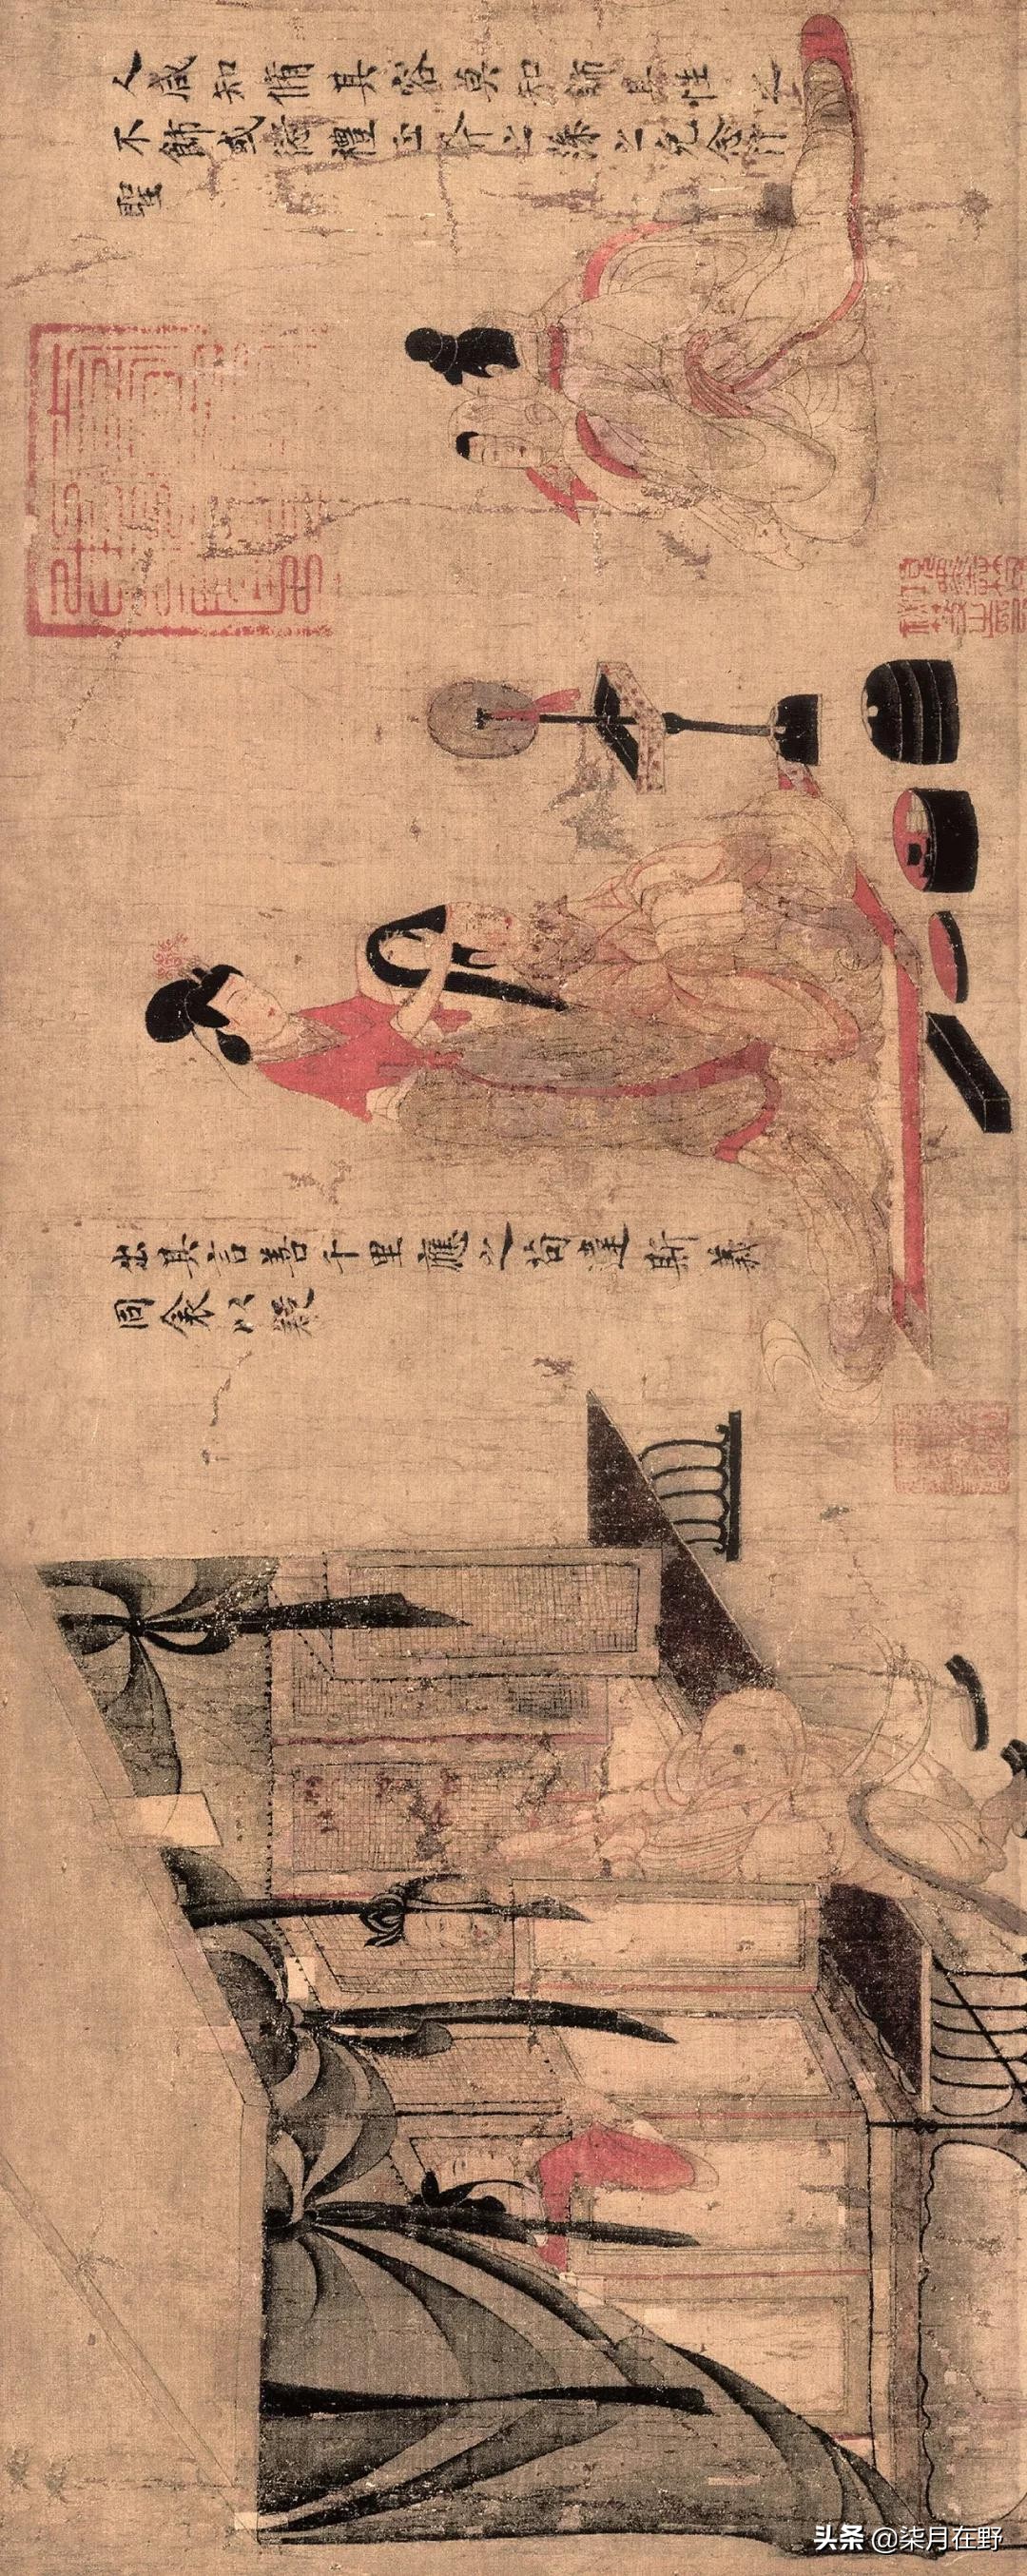 人咸知脩其容莫知飾其性之
不飾或愆禮正斧之藻之克念作
聖
出其言善千里應之苟違斯義
同衾以疑
头条 @柒月在野